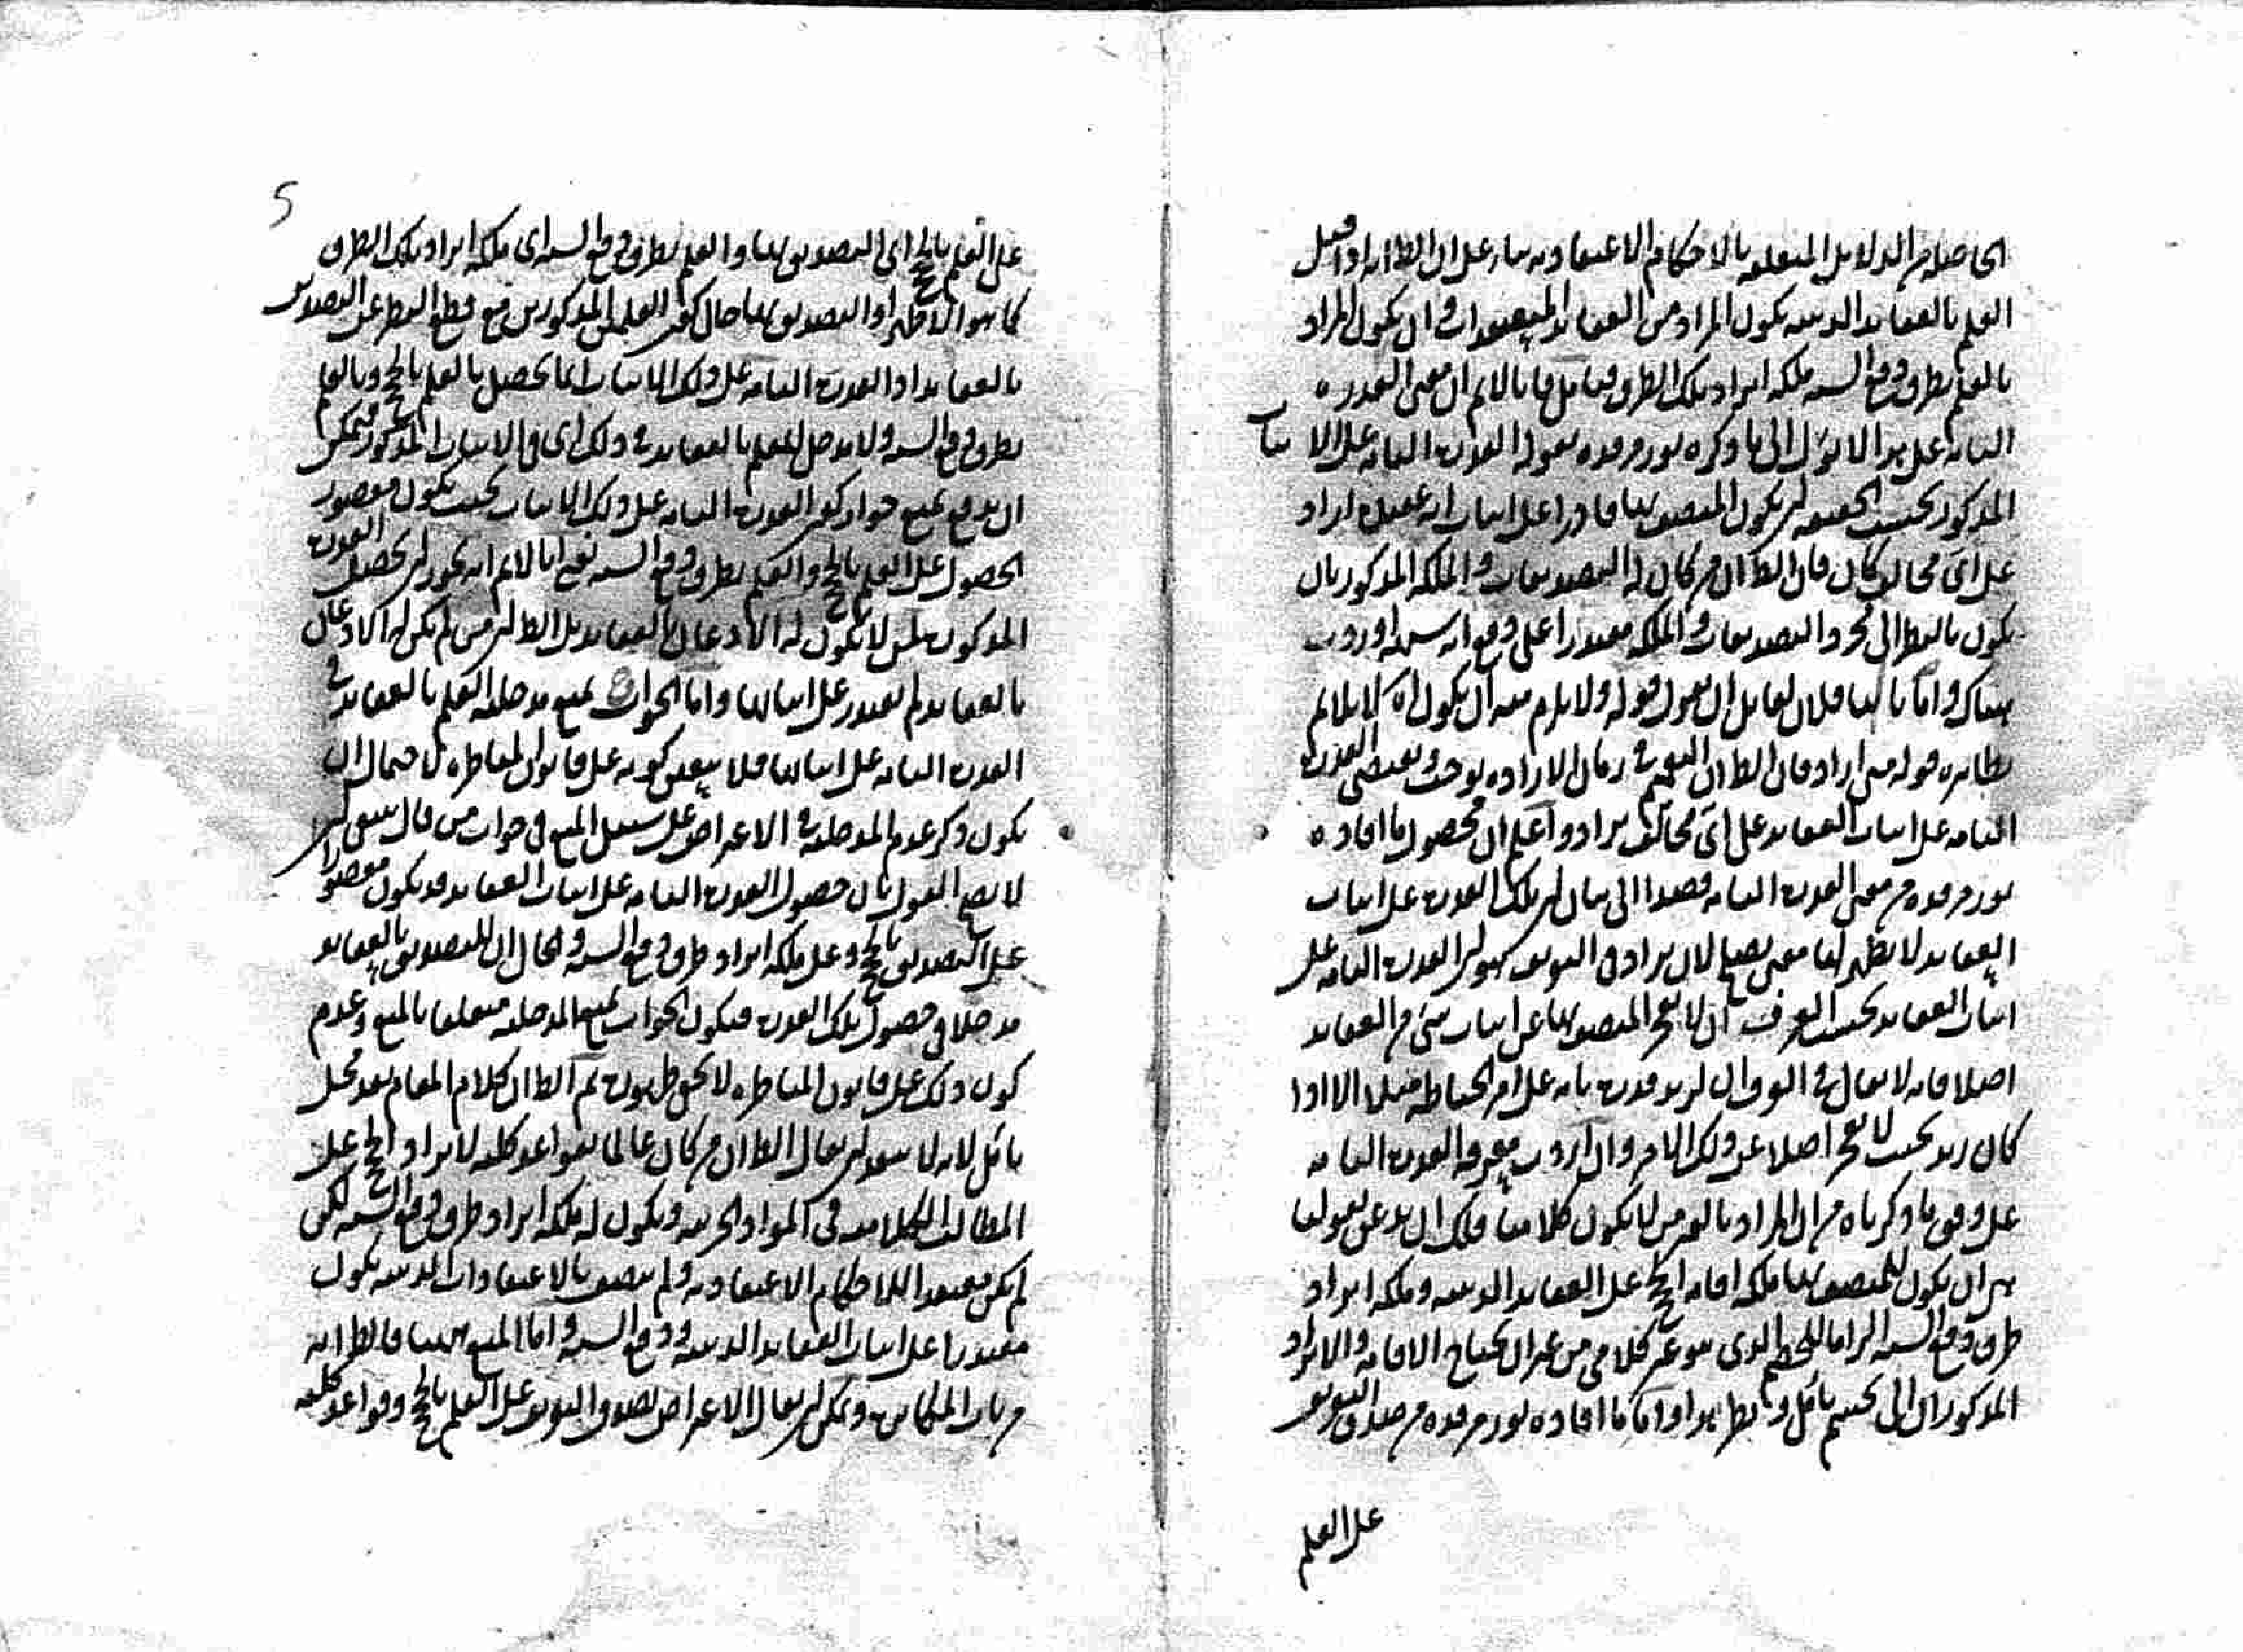 الحاصلة من الدلايل المتعلقة بالاحكام الاعتقادية بناء على ان الظ انه اذا قيل
العلم بالعقايد الدينية يكون المراد من العقايد المعتقدات وان يكون المراد
بالعلم بطرق دفع الشبه ملكة ايراد تلك الطرق
التامة على هذا لا يؤل الى ما ذكره نور مرقده بقوله القدرة التامة على الاثبات
المذكور بحسب الحقيقة ان يكون المتصف بها قادرا على اثبات اية عقيدة اراد
على اى مخالف كان فان الظ ان من كان له التصديقات والملكة المذكورتان
يكون بالنظر الى مجرد التصديقات والملكة مقتدرا على دفع اية شبهة اوردت
هناك واما ثانيا فلان لقايل ان يقول قوله ولا يلزم منه ان يكون اه لا يلايم
بظاهره قوله متى اراد فان الظ ان في زمان الارادة يوجد القدرة
التامة على اثبات العقايد على اى مخالف يراد واعلم ان محصول ما افاده
نور مرقده من معنى القدرة التامة قصدا الى بيان ان تلك القدرة على اثبات
العقايد لا يظهر لها معنى يصلح لان يراد في التعريف هو ان القدرة التامة على
اثبات العقايد بحسب العرف ان لا يعجز المتصف بها عن اثبات شئ من العقايد
اصلا فانه لا يقال في العرف ان لزيد قدرة تامة على امر الخياطة مثلا الا اذا
كان زيد بحيث لا يعجز اصلا عن ذلك الامر وان اردت معرفة القدرة التامة
على وفق ما ذكرناه من ان المراد بالغير من لا يكون كلاميا فلك ان تدعى بقولنا
هى ان يكون للمتصف بها ملكة اقامة الحجج على العقايد الدينية وملكة ايراد
طرق دفع الشبه الزاما للخصم الذى هو غير كلامى من غير ان يحتاج الاقامة والايراد
المذكوران الى تجشم تأمل ونظر هذا واما ما افاده نور مرقده من صدق التعريف
على العلم
5
على العلم بالحجج اى التصديق بها والعلم بطرق دفع الشبه اى ملكة ايراد تلك الطرق
كما هو الظاهر او التصديق بها حال كون العلمين المذكورين مع قطع النظر عن التصديق
بالعقايد اذ القدرة التامة على ذلك الاثبات انما تحصل بالعلم بالحجج وبالعلم
بطرق دفع الشبه ولا مدخل للعلم بالعقايد في ذلك اى في الاثبات المذكور فيمكن
ان يدفع بمنع جواز كون القدرة التامة على ذلك الاثبات بحيث يكون مقصور
الحصول على العلم بالحجج والعلم بطرق دفع الشبه نعم انا لا نم انه يجوز ان تحصل القدرة
المذكورة لمن لا يكون له الاذعان بالعقايد بل الظ ان من لم يكن له الاذعان
بالعقايد لم يقتدر على اثباتها واما الجواب بمنع مدخلية العلم بالعقايد في
القدرة التامة على اثباتها فلا يتعين كونه على قانون المناظرة لاحتمال ان
يكون ذكر عدم المدخلية في الاعتراض على سبيل المنع في جواب من قال ينبغى ان
لا يصح القول بان حصول القدرة التامة على اثبات العقايد قد يكون مقصورا
على التصديق بالحجج وعلى ملكة ايراد طرق دفع الشبه والحال ان للتصديق بالعقايد
مدخلا في حصول تلك القدرة فيكون الجواب بمنع المدخلية متعلقا بالمنع وعدم
كون ذلك على قانون المناظرة لا يخفى ظهوره ثم الظ ان كلام المقام بعد محل
تأمل لانه لا يبعد ان يقال الظ ان من كان عالما بقواعد كلية لايراد الحجج على
المطالب الكلامية فى المواد الجزئية ويكون له ملكة ايراد طرق دفع الشبه لكن
لم يكن معتقدا للاحكام الاعتقادية ولم يتصف بالاعتقادات الدينية يكون
مقتدرا على اثبات العقايد الدينية ودفع الشبه واما المنع ههنا فالظ انه
من باب المكابرة ويمكن ان يقال الاعتراض بصدق التعريف على العلم بالحجج وقواعد كلية